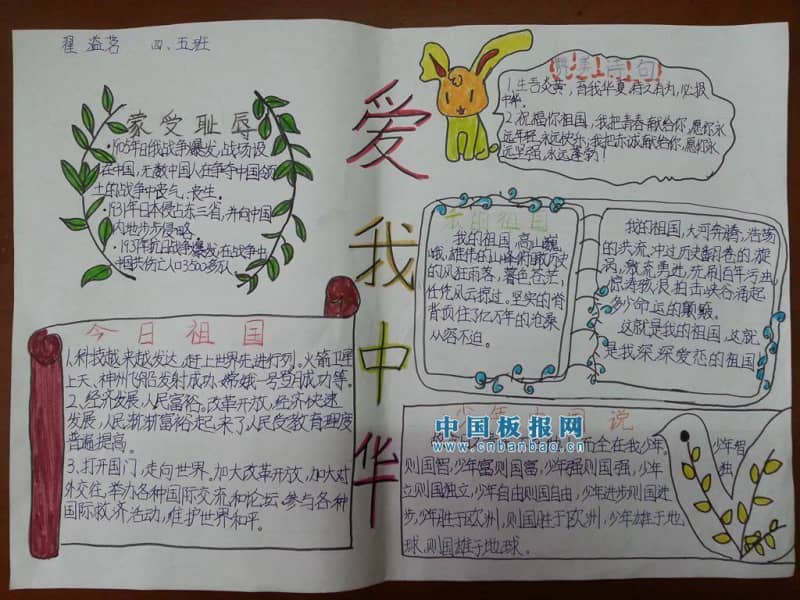 四、五班
爱我中华
蒙受耻辱
·1905年日俄战争爆发,战场设
在中国,无数中国人在争夺中国领
土的战争中丧气、丧生。
·1931年日本侵占东三省,并向中国
内地步步侵略。
·1937年抗日战争爆发,在战争中
中国共伤亡人口3500多万。
今日祖国
1.科技越来越发达,赶上世界先进行列。火箭卫星
上天、神州飞船发射成功、嫦娥一号登月成功等。
2.经济发展,人民富裕。改革开放,经济快速
发展,人民渐渐富裕起来了人民受教育程度
普遍提高。
3.打开国门,走向世界。加大改革开放,加大对
外交往,举办各种国际交流和论坛,参与各种
国际救济活动,维护世界和平。
赞美诗句
1.生吾炎黄,育我华夏,待之有为,必报
中华。
2.祝福你祖国,我把青春献给你,愿你永
远年轻,永远快乐;我把赤诚献给你,愿你永
远坚强,永远蓬勃!
我的祖国
我的祖国,高山巍
峨,雄伟的山峰俯瞰历史
的风狂雨落,暮色苍茫,
任凭风云掠过。坚实的脊
背顶住了亿万年的沧桑
从容不迫。
我的祖国,大河奔腾,浩荡
的洪流,冲过历史翻卷的漩
涡,激流勇进,洗刷百年污垢,
惊涛骇浪拍击峡谷涌起
多少命运的颠簸。
这就是我的祖国,这就
是我深深爱恋的祖国
少年中国说
而全在我少年。少年智
则国智,少年富则国富,少年强则国强,少年独
立则国独立,少年自由则国自由,少年进步则国进
步,少年胜于欧洲,则国胜于欧洲,少年雄于地
球,则国雄于地球。
中国板报网
www.cnbanbao.cn